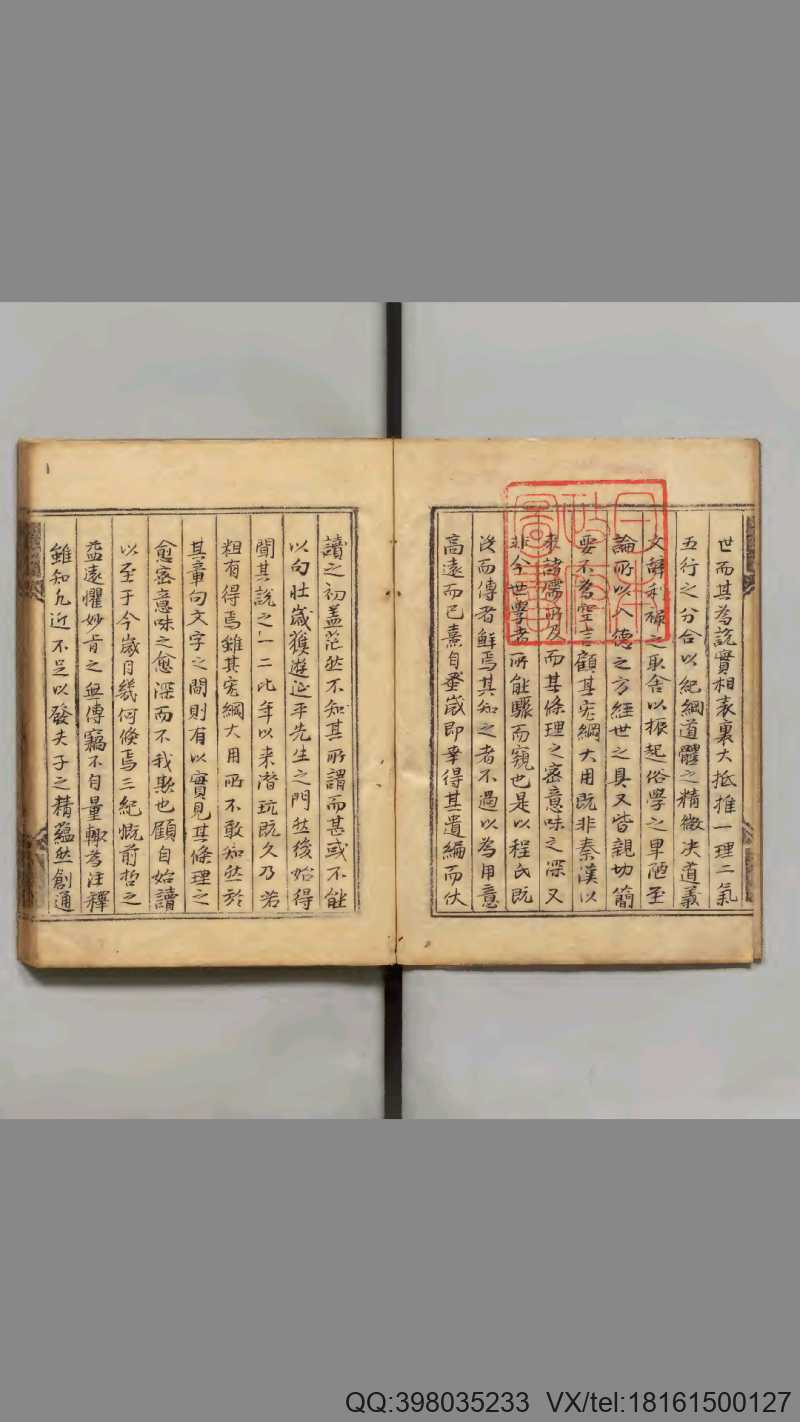 世而其為說實相表裏大抵推一理二氣
五行之分合以紀綱道軆之精微决道義
文辭利祿之取舍以振起俗學之卑陋至
論所以入德之方經世之具又皆親切簡
要不為空言顧其宏綱大用既非秦漢以
來諸儒所及而其條理之密意味之深又
非今世學者所能驟而窺也是以程氏既
沒而傳者鮮焉其知之者不過以為用意
高遠而已熹自蚤歲即幸得其遺編而伏
讀之初盖茫然不知其所謂而甚或不能
以句壮歲獲遊延平先生之門然後始得
聞其說之一二比年以来潛玩既久乃若
粗有得焉雖其宏綱大用所不敢知然於
其章句文字之間則有以實見其條理之
愈密意味之愈深而不我欺也顧自始讀
以至于今歲月幾何倐焉三紀慨前哲之
益遠懼妙旨之無傳竊不自量輙為注釋
雖知凡近不足以發夫子之精蘊然創通
QQ:398035233 VX/tel:18161500127